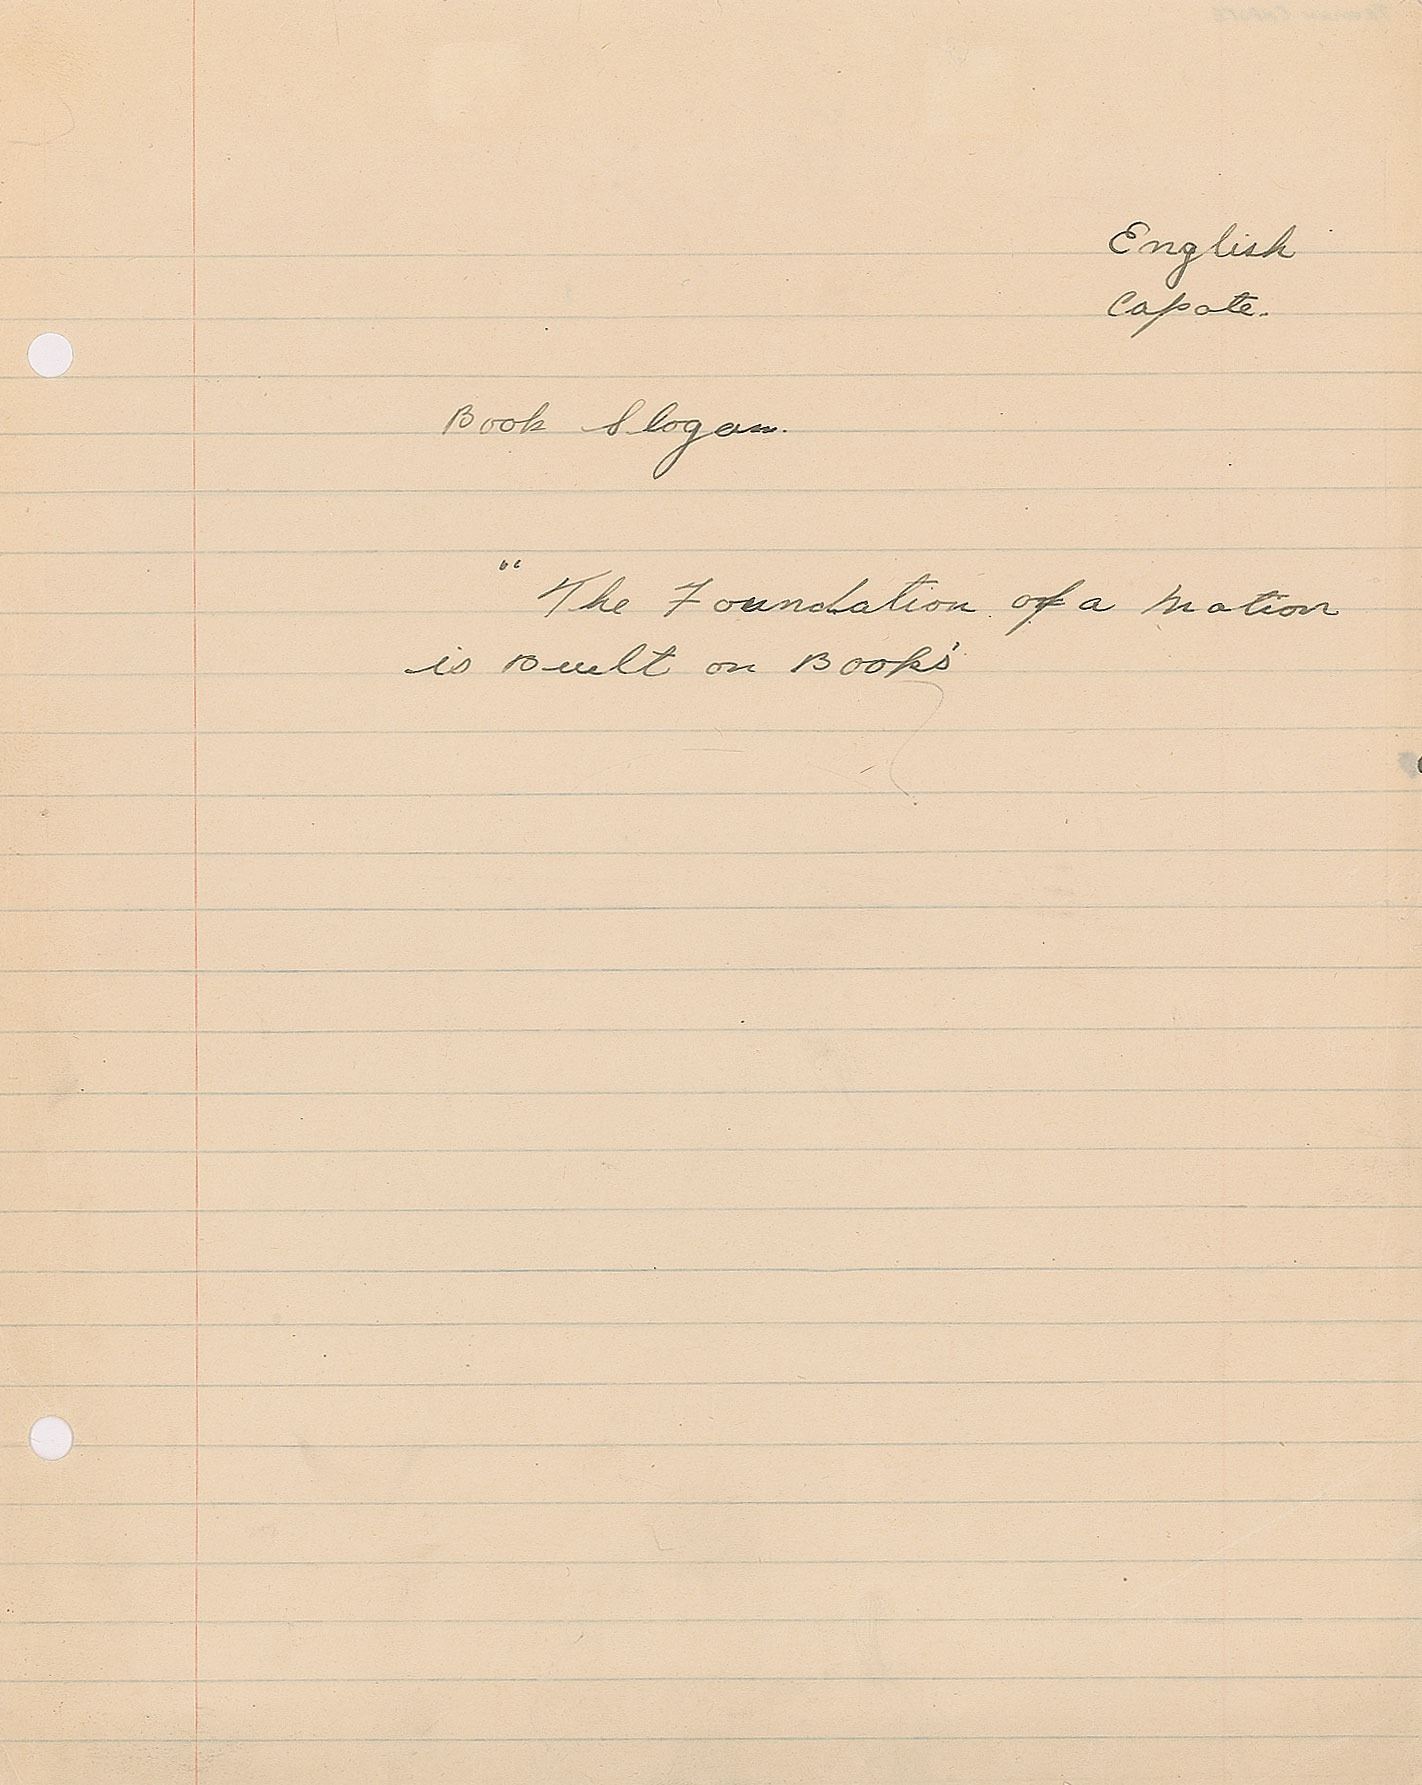 English
Capote.
Book Slogan.
" The Foundation of a Nation
is Built on Books'